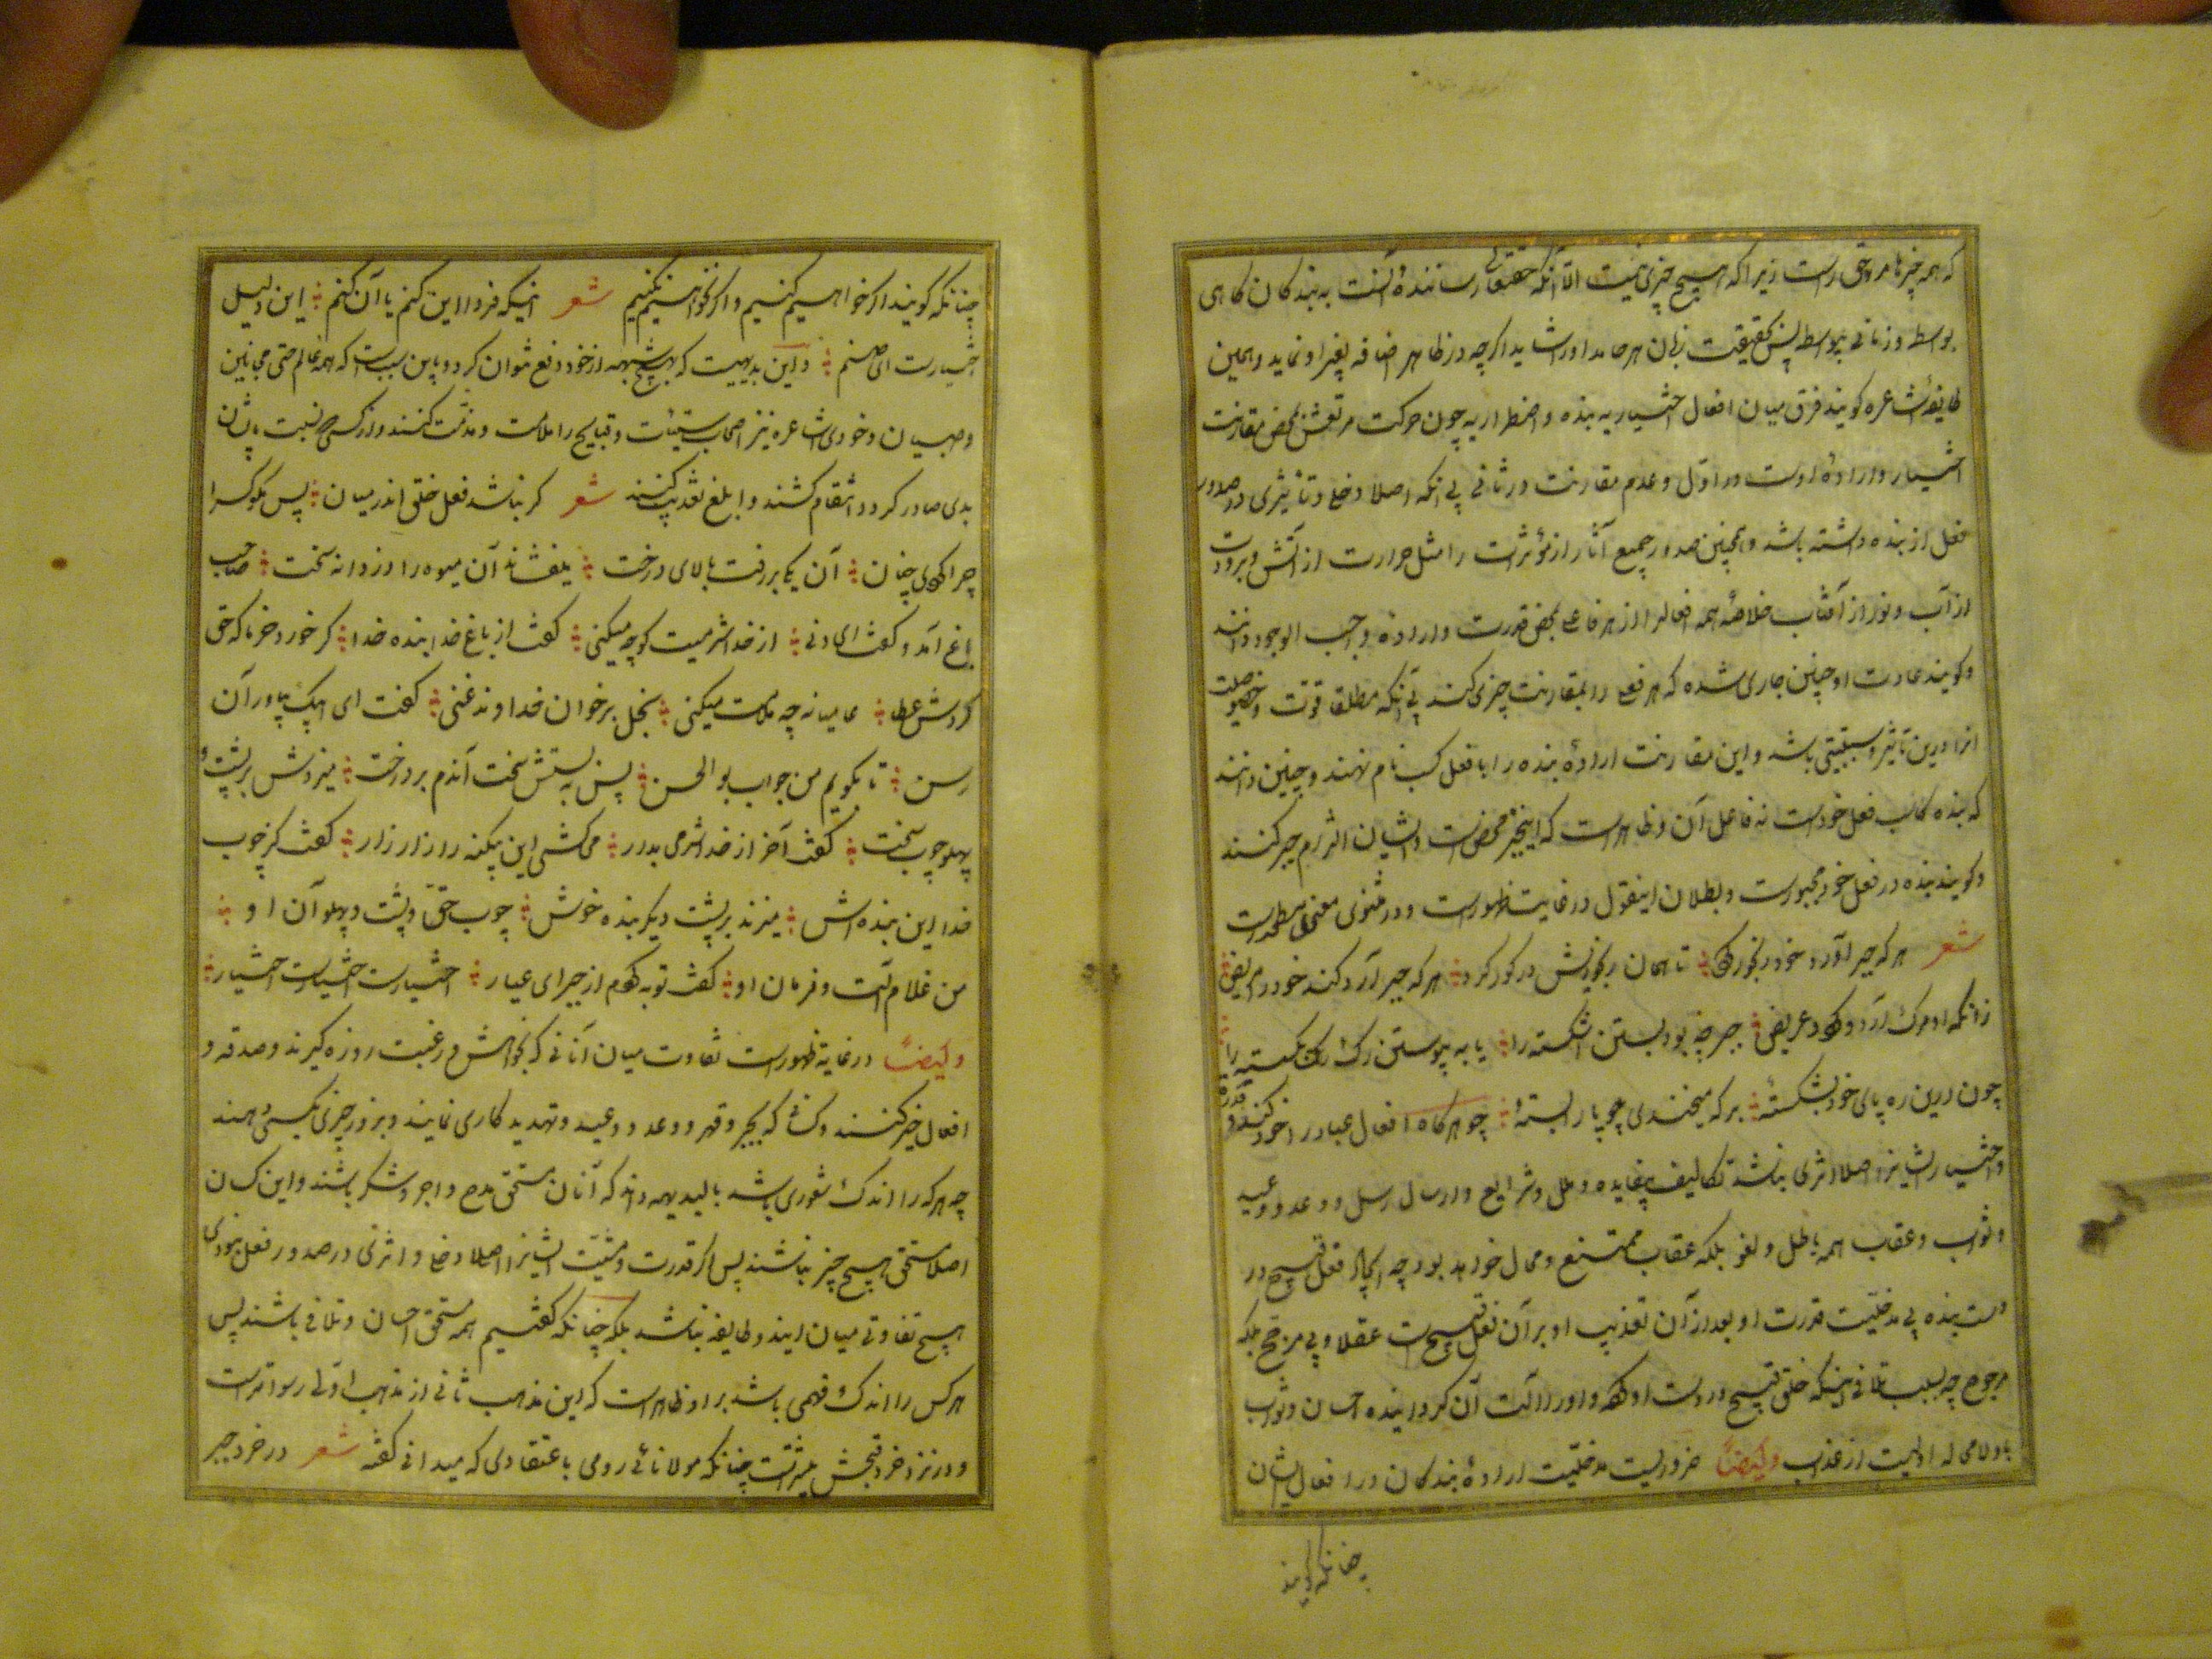 که همه چیز نامزد حق است زیرا که هیچ چیزی نیست الا آنکه حقتعالی رساننده آنست به بندگان گاهی
بواسطه و زمانی بیواسطه پس بحقیقت زبان هر حامد اورا شاید اگر چه در ظاهر اضافه بغیر او نماید و همین
طایفهٔ اشاعره گویند فرق میان افعال اختیاریه بنده و اضطراریه چون حرکت مرتعش بمحض مقارنت
اختیار و ارادهٔ اوست در اول و عدم مقارنت در ثانی بی آنکه اصلا دخل و تأثیری در صدور
فعل از بنده داشته باشد و همچنین صدور جمیع آثار از مؤثرات را مثل حرارت از آتش و برودت
از آب و نور از آفتاب خلاصه همه افعال را از هر فاعل بمحض قدرت و ارادهٔ واجب الوجود دانند
و گویند عادت او چنین جاری شده که هر فعل را بمقارنت چیزی کند بی آنکه مطلقا قوت و خصوصیت
انرا درین تأثیر و سببیتی باشد و این مقارنت ارادهٔ بنده را با فعل کسب نام نهند و چنین دانند
که بنده کاسب فعل خود است نه فاعل آن و ظاهر است که این جبر محض است و ایشان الزام جبر کنند
و گویند بنده در فعل خود مجبور است و بطلان اینقول در غایت ظهور است و در مثنوی معنوی مسطور است
شعر هر که جبر آورد خود رنجور کرد تا همان رنجوریش در گور کرد هر که جبر آرد کند خود را مریض
زانکه او مرگ آرد و گردد عریض جبر چه بود بستن اشکسته را یا به پیوستن رگ بگسسته را
چون درین ره پای خود بشکستهٔ بر که میخندی چو پا را بستهٔ چو هرگاه افعال عباد را خود کند و قدرت
و اختیار ایشانرا اصلا اثری نباشد تکالیف بیفایده و ملل و شرایع و ارسال رسل و وعد و وعید
و ثواب و عقاب همه باطل و لغو بلکه عقاب ممتنع و محال خواهد بود چه ایجاد فعل قبیح در
دست بنده بی مدخلیت قدرت او بعد از آن تعذیب او بر آن فعل قبیح است عقلا و بی مرجح بلکه
مرجوح چه بسبب تلافی اینکه خلق قبیح در دست او کرده و او را آلت آن گردانیده احسان و ثواب
باو لامحاله اولیست از عذاب و ایضاً ضروریست مدخلیت ارادهٔ بندگان در افعال ایشان
چنانکه گویند
چنانکه گویند اگر خواهیم کنیم و اگر نخواهیم نکنیم شعر اینکه فردا این کنم یا آن کنم این دلیل
اختیارست ای صنم و این بدیهیست که بهیچ شبهه از خود دفع نتوان کرد و باین سبب است که همه عالم حتی مجانین
و صبیان و خود اشاعره نیز اصحاب سیئات و قبایح را ملامت و مذمت کنند و از کسی که نسبت بایشان
بدی صادر گردد انتقام کشند و ابلغ تعذیب کنند شعر گر نباشد فعل خلق اندر میان پس مگو کس را
چرا کردی چنان آن یکی بر رفت بالای درخت میفشاند آن میوه را دزدانه سخت صاحب
باغ آمد و گفت ای دنی از خدا شرمیت کو چه میکنی گفت از باغ خدا بنده خدا گر خورد خرما که حق
کردش عطا عامیانه چه ملامت میکنی بخل بر خوان خداوند غنی گفت ای ایبک بیاور آن
رسن تا بگویم من جواب بوالحسن پس ببستش سخت آندم بر درخت میزدش بر پشت و
پهلو چوب سخت گفت آخر از خدا شرمی بدار می کشی این بیگنه را زار زار گفت کز چوب
خدا این بنده اش میزند بر پشت دیگر بنده خوش چوب حق و پشت و پهلو آن او
من غلام آلت و فرمان او گفت توبه کردم از جبر ای عیار اختیارست اختیارست اختیار
و ایضاً در غایة ظهور است تفاوت میان آنانی که بخواهش و رغبت روزه گیرند و صدقه و
افعال خیر کنند و کسانی که بجبر و قهر و وعد و وعید و تهدید کاری نمایند و بزور چیزی بکسی دهند
چه هر که را اندک شعوری باشد بالبدیهه داند که آنان مستحق مدح و اجر و شکر باشند و این کسان
اصلا مستحق هیچ چیز نباشند پس اگر قدرت و مشیت ایشانرا اصلا دخل و اثری در صدور فعل نبودی
هیچ تفاوتی میان این دو طایفه نباشد بلکه چنانکه گفتیم همه مستحق احسان و تلافی باشند پس
هر کس را اندک فهمی باشد بر او ظاهر است که این مذهب ثانی از مذهب اولی رسواتر است
و در نزد خرد قبحش بیشتر است چنانکه مولانائی رومی با عتقادی که میدانی گفته شعر در خرد جبر